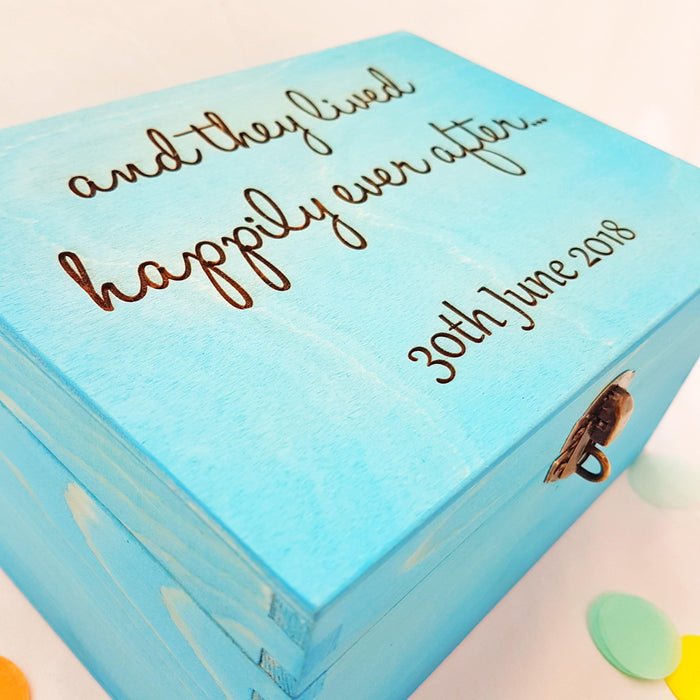 and they lived
happily ever after...
30th June 2018